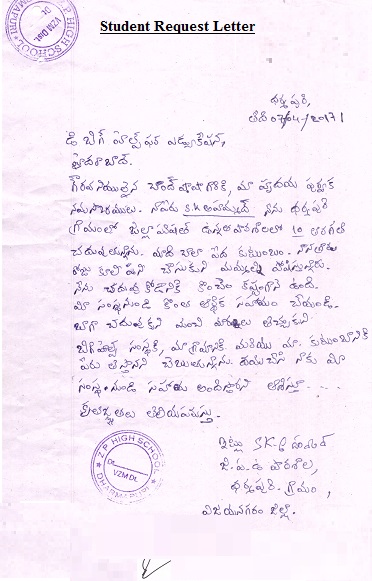 Student Request Letter
Z.P HIGH SCHOOL
VZM Dt.
ధర్మపురి,
తేది 07/04/2017
ది బిగ్ హెల్ప్ ఫర్ ఎడ్యుకేషన్,
హైదరాబాద్.
గౌరవనీయులైన చాంద్ పాషా గారికి, మా హృదయ పూర్వక
నమస్కారములు. నా పేరు S.K. అహమ్మద్ నేను ధర్మపురి
గ్రామంలో జిల్లా పరిషత్ ఉన్నత పాఠశాలలో 10 తరగతి
చదువుతున్నాను. మాది చాలా పేద కుటుంబం. నాన్నగారు
రోజు కూలి పని చేసుకుని మమ్మల్ని పోషిస్తున్నారు.
నేను చదువు కోడానికి కొంచెం కష్టంగా ఉంది.
మీ సంస్థనుండి కొంత ఆర్థిక సహాయం చేయండి.
బాగా చదువుకుని మంచి మార్కులు తెచ్చుకుని
బిగ్ హెల్ప్ సంస్థకి, మా గ్రామానికి మరియు మా కుటుంబానికి
పేరు తెస్తానని చెబుతున్నాను. దయచేసి నాకు మీ
సంస్థ నుండి సహాయం అందిస్తారని ఆశిస్తూ ----
కృతజ్ఞతలు తెలియపరుస్తూ.
ఇట్లు S.K.
జి.ప.ఉ పాఠశాల,
ధర్మపురి గ్రామం,
విజయనగరం జిల్లా.
Z.P HIGH SCHOOL
Dt.
VZM Dt.
DHARMAPURI